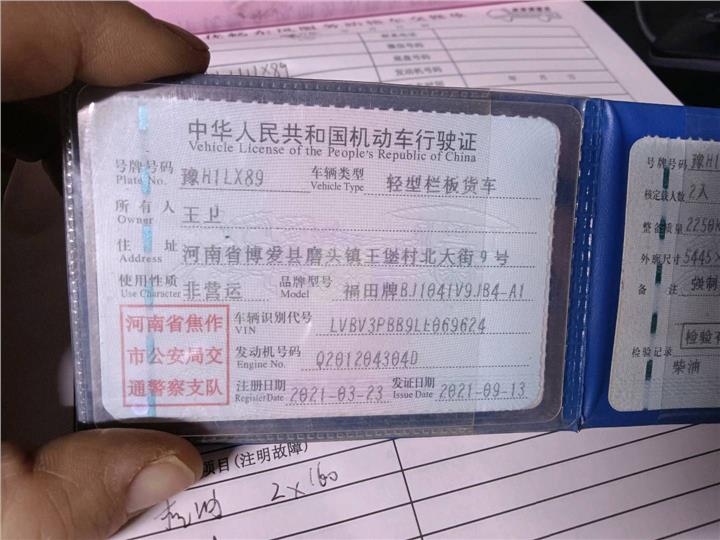 中华人民共和国机动车行驶证
Vehicle License of the People's Republic of China
号牌号码 豫H1LX89 车辆类型 轻型栏板货车
Plate No. Vehicle Type
所有人 王卫
Owner
住址 河南省博爱县磨头镇王堡村北大街9号
Address
使用性质 非营运 品牌型号 福田牌BJ1041V9JB4-A1
Use Character Model
河南省焦作
市公安局交
通警察支队
车辆识别代号 LVBV3PBB9LE069624
VIN
发动机号码 Q201204304D
Engine No.
注册日期 2021-03-23 发证日期 2021-09-13
Register Date Issue Date
号牌号码 豫H1
核定载人数 2人
整备质量 2250K
外廓尺寸 5445×
备注 强制
检验
检验记录
柴油
项目(注明故障)
2×160